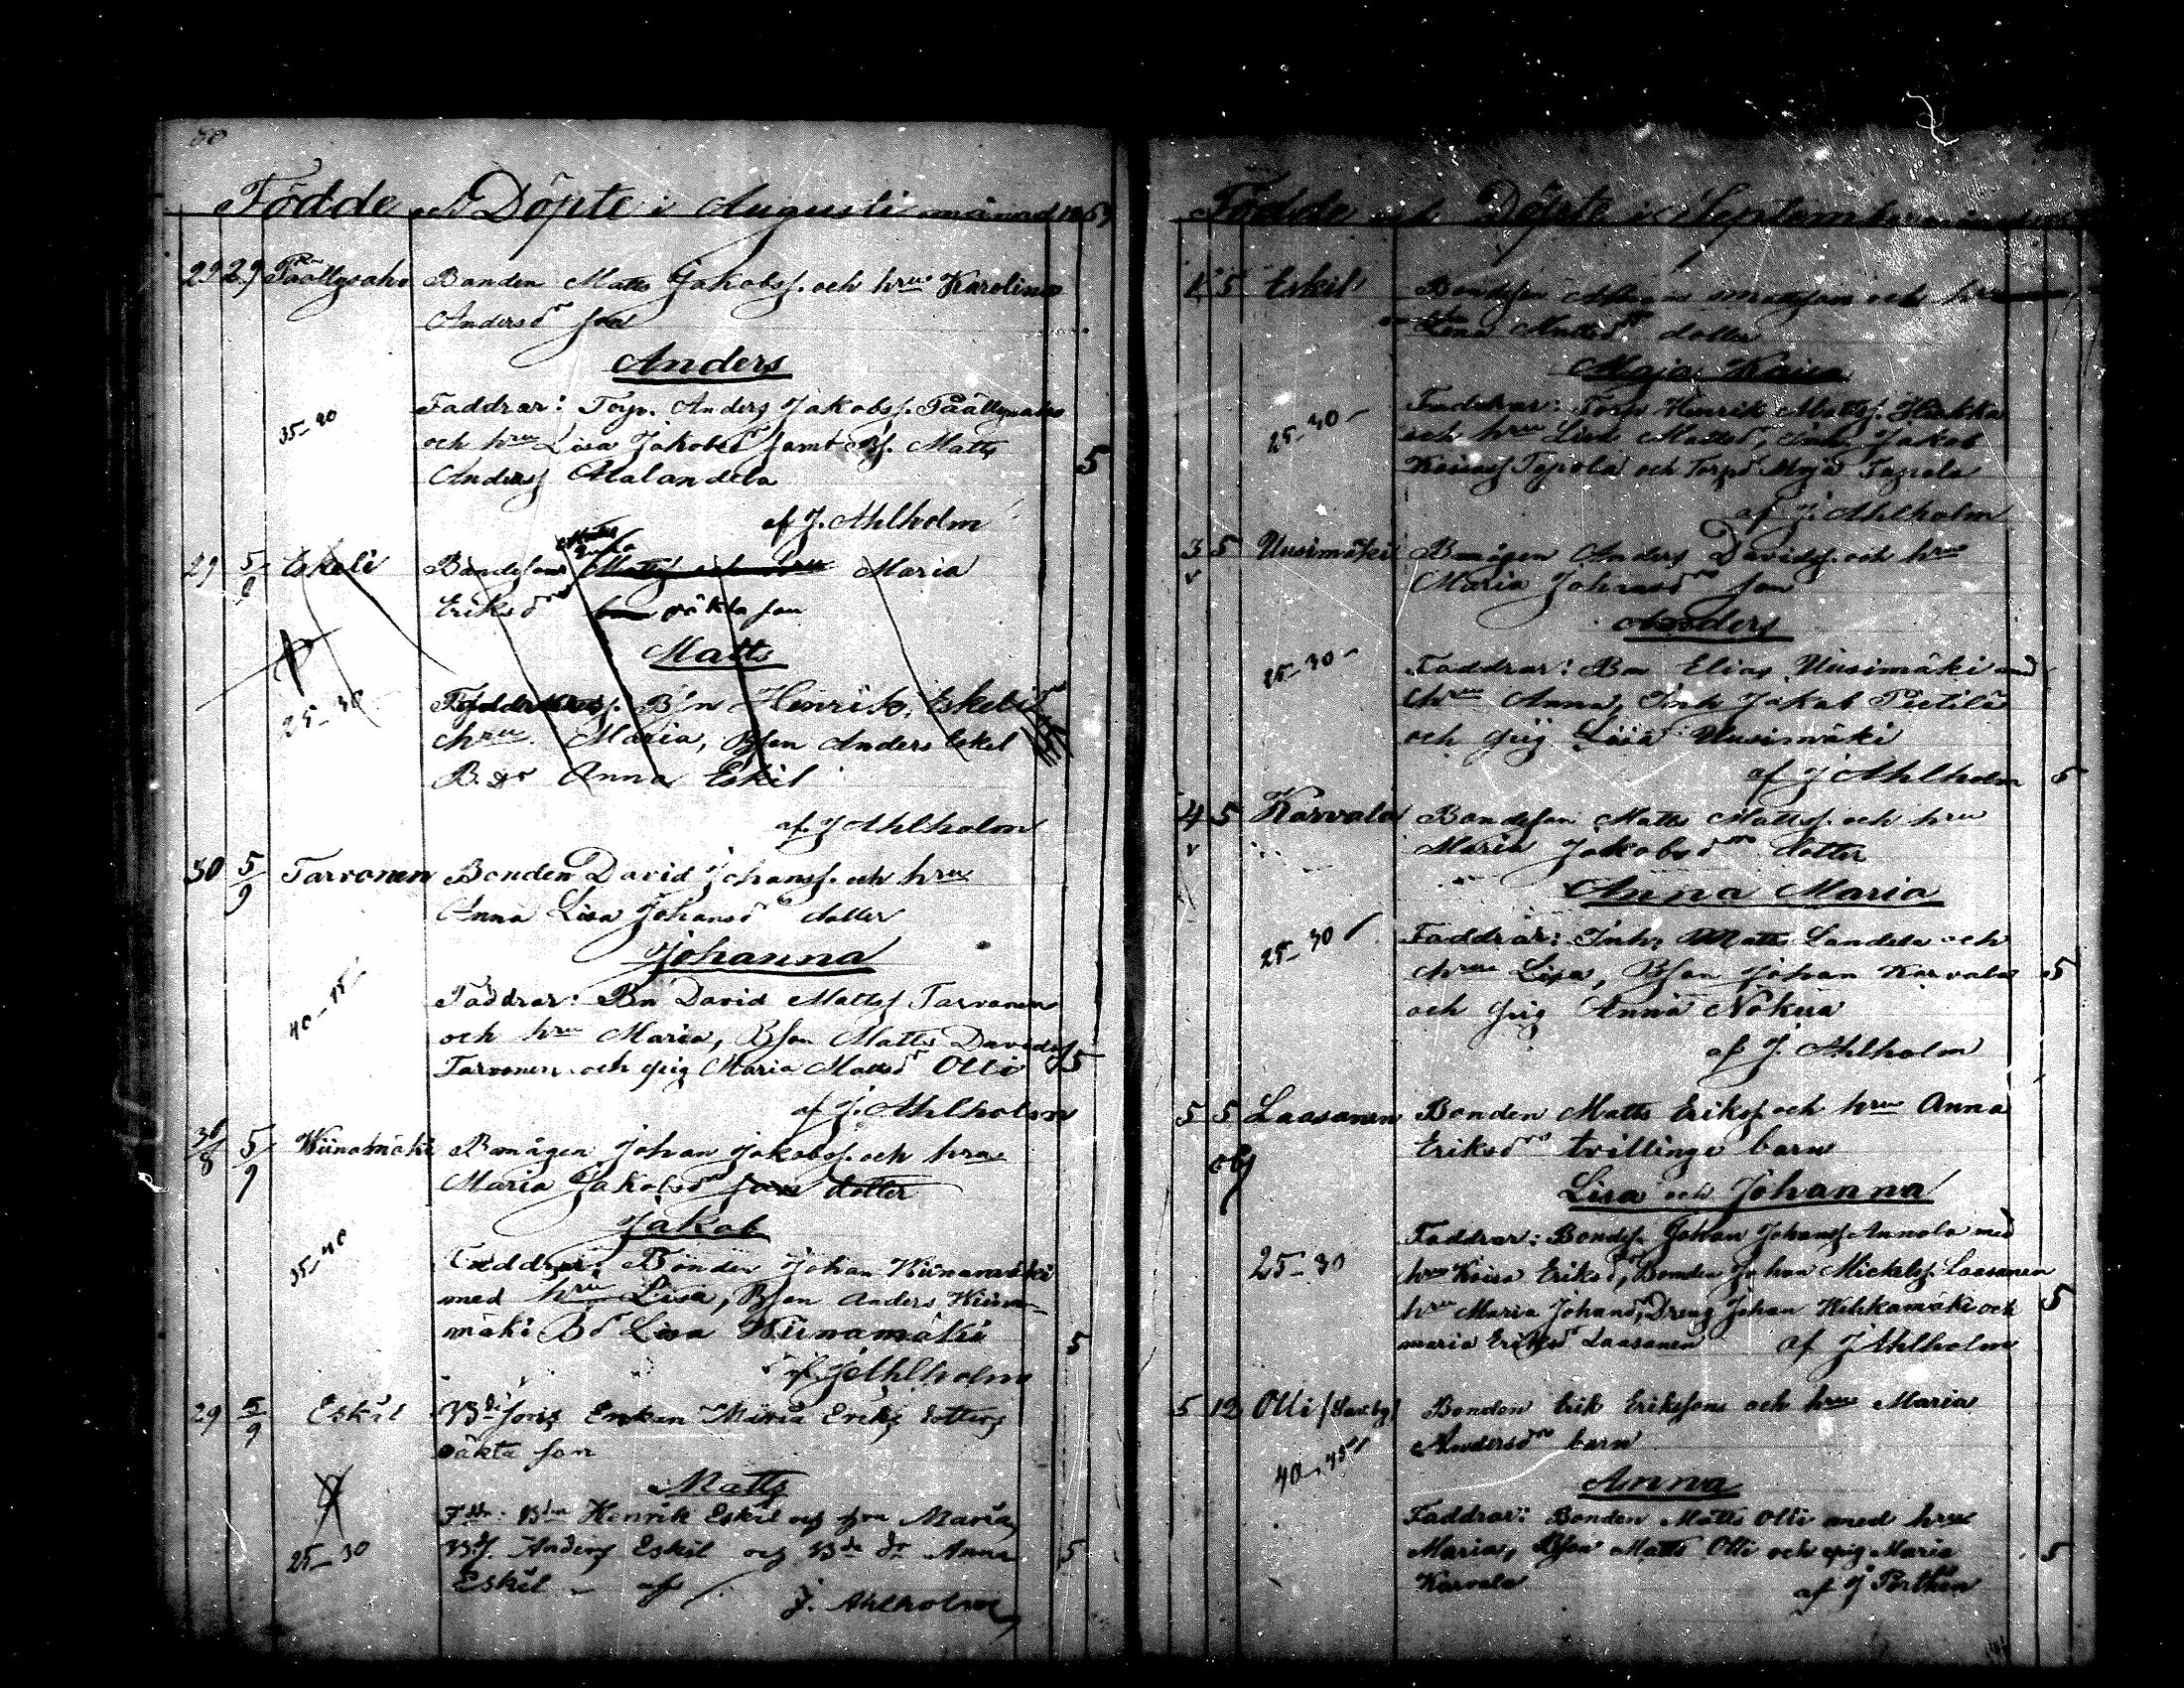 Födde och Döpte i Augusti månad
29 29 Päällysaho Bonden Matts Jakobss. och hru Karolina
Andersdr son
Anders
35-40 Faddrar: Torp. Anders Jakobss. Päällysaho
och hru Lisa Jakobsdr samt Matts
Anders Alalandela 5
af J. Ahlholm
29 5/9 Eskeli Bondeson Matts och hru Maria
Eriksdr oäkta son
Matts
25-30 B:n Henrik Eskeli
hru Maria, Bson Anders Eskel
B. dr Anna Eskil
af J Ahlholm
30 5/9 Tarvonen Bonden David Johanss. och hru
Anna Lisa Johansdr dotter
Johanna
Faddrar: Bn David Mattss Tarvonen
och hru Maria, Bson Matts Davidss
Tarvonen och pig Maria Mattsdr Olli 5
af J. Ahlholm
5/9 Kiinamäki Bmågen Johan Jakobss. och hru
Maria Jakobsdr son dotter
Jakob
35-40 Faddrar: Bonden Johan Kiinamäki
med hru Lisa, Bson Anders Kiina-
mäki Bdr Lisa Kiinamäki 5
af J Ahlholm
29 5/9 Eskil Enkan Maria Eriks dotters
oäkta son
Matts
Henrik Eskil och hru Maria,
25-30 Anders Eskil och Anna 5
Eskil af
J. Ahlholm
Födde och Döpte i September
1 5 Eskil Bondeson Mattsson och hru
Lena Mattsdr dotter
Maja Kaisa
25-30 Faddrar: Torp Henrik Mattss. Hakka
och hru Lisa Mattsdr, Jakob
Tapola och Torpd Maja Tapola
af J. Ahlholm
3 5 Uusimäki Bmågen Anders Davidss. och hru
Maria Johansdr son
Anders
25-30 Faddrar: Bn Elias Uusimäki med
hru Anna, Inh Jakob Pietilä
och pig Lisa Uusimäki
af J Ahlholm 5
4 5 Karvala Bondeson Matts Mattss. och hru
Maria Jakobsdr dotter
Anna Maria
25-30 Faddrar: Inh: Matts Landela och
hru Lisa, Bson Johan Karvala 5
och pig Anna Nokua
af J. Ahlholm
5 5 Laasanen Bonden Matts Erikss. och hru Anna
Eriksdr tvillinge barn
Lisa och Johanna
Faddrar: Bondes. Johan Johanss Annala med
25-30 hru Kaisa Eriksdr, Bonden Johan Mickelss. Laasanen
hru Maria Johansdr, Dreng Johan Kihkamäki och 5
maria Eriksdr Laasanen af J Ahlholm
5 12 Olli Bonden Erik Eriksson och hru Maria
Andersdr barn
40-45 Anna
Faddrar: Bonden Matts Olli med hru
Maria, Bson Matts Olli och pig Maria 5
Karvala af J Porthén